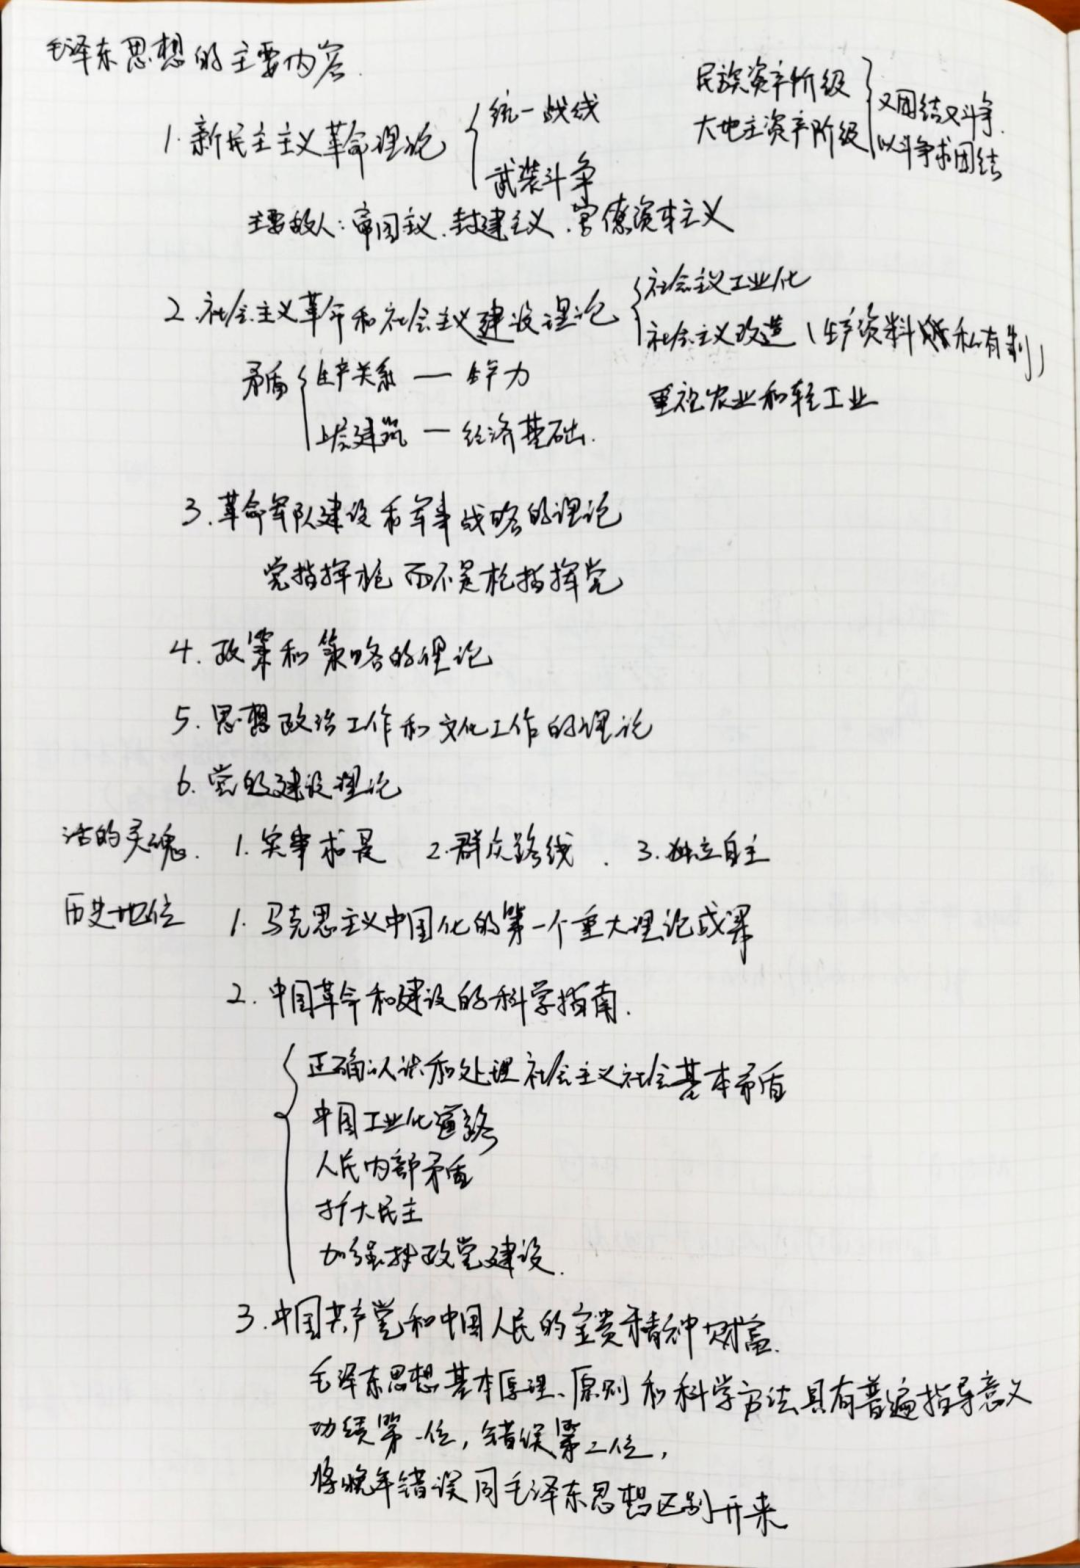 毛泽东思想的主要内容.
1.新民主主义革命理论
统一战线
武装斗争
民族资产阶级
大地主资产阶级
又团结又斗争.
以斗争求团结
主要敌人:帝国主义.封建主义.官僚资本主义
2.社会主义革命和社会主义建设理论
社会主义工业化
社会主义改造(生产资料 私有制)
重视农业和轻工业
矛盾
生产关系 — 生产力
上层建筑 — 经济基础.
3.革命军队建设和军事战略的理论
党指挥枪 而不是枪指挥党
4.政策和策略的理论
5.思想政治工作和文化工作的理论
6.党的建设理论
活的灵魂. 1.实事求是 2.群众路线. 3.独立自主
历史地位 1.马克思主义中国化的第一个重大理论成果
2.中国革命和建设的科学指南.
正确认识和处理社会主义社会基本矛盾
中国工业化道路
人民内部矛盾
扩大民主
加强执政党建设.
3.中国共产党和中国人民的宝贵精神财富.
毛泽东思想基本原理、原则和科学方法具有普遍指导意义
功绩第一位,错误第二位,
将晚年错误同毛泽东思想区别开来